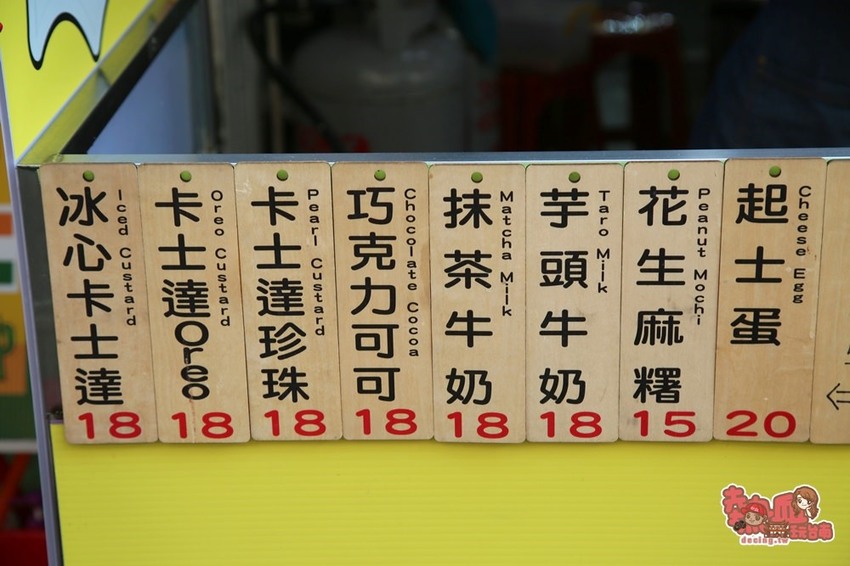 冰心卡士達
Iced Custard
18
卡士達Oreo
Oreo Custard
18
卡士達珍珠
Pearl Custard
18
巧克力可可
Chocolate Cocoa
18
抹茶牛奶
Matcha Milk
18
芋頭牛奶
Taro Milk
18
花生麻糬
Peanut Mochi
15
起士蛋
Cheese Egg
20
熱血玩台南
decing.tw